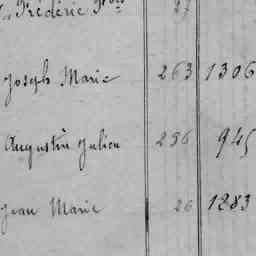 Frédéric Fois 27
Joseph Marie 263 1306
Augustin Julien 236 945
Jean Marie 26 1283